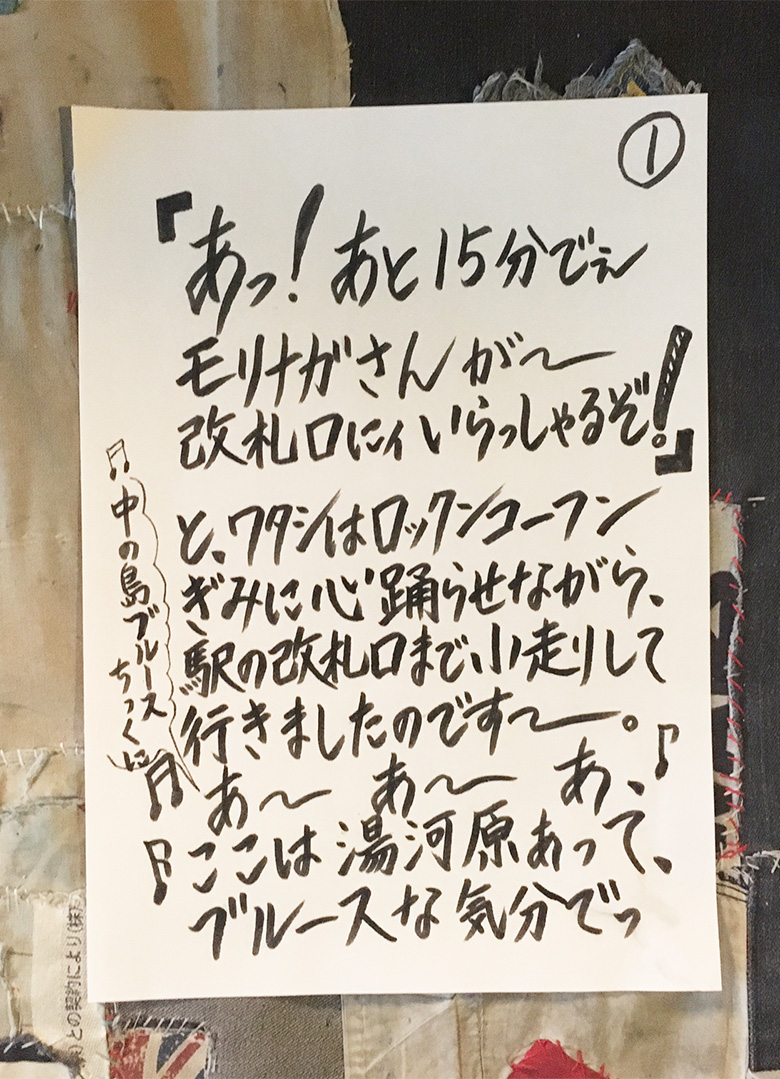 ①
『あっ!あと15分でぇ
モリナガさんが〜
改札口にィいらっしゃるぞ!』
と、ワタシはロックンコーフン
ぎみに心踊らせながら、
駅の改札口まで、小走りして
行きましたのです〜。
♬中の島ブルース
ちっくに
♬あ〜 あ〜 あ、♪
♪ここは湯河原あって、
ブルースな気分でっ
との契約により(株)